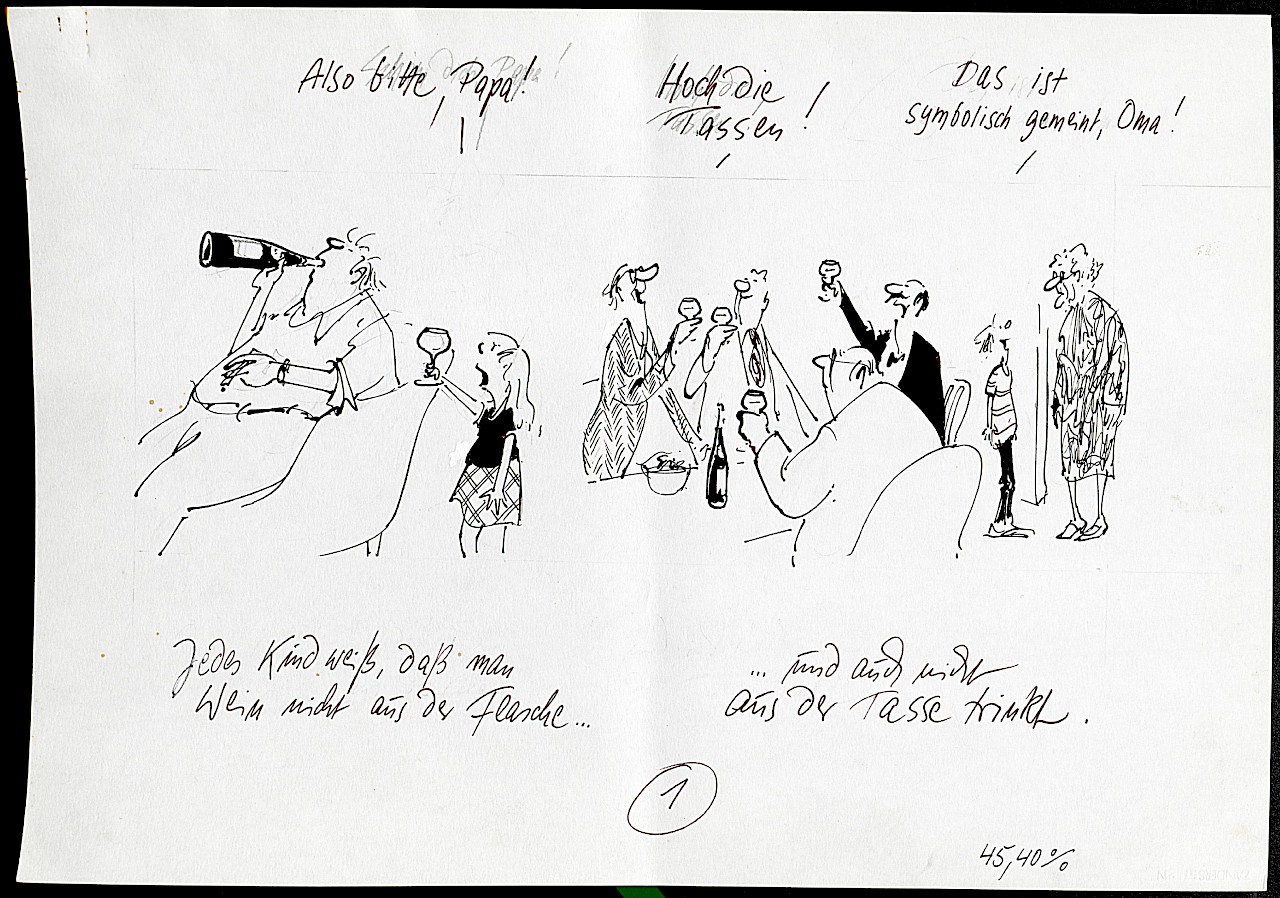 Also bitte, Papa!
Hoch die
Tassen!
Das ist
symbolisch gemeint, Oma!
Jedes Kind weiß, daß man
Wein nicht aus der Flasche...
... und auch nicht
aus der Tasse trinkt.
1
45,40%